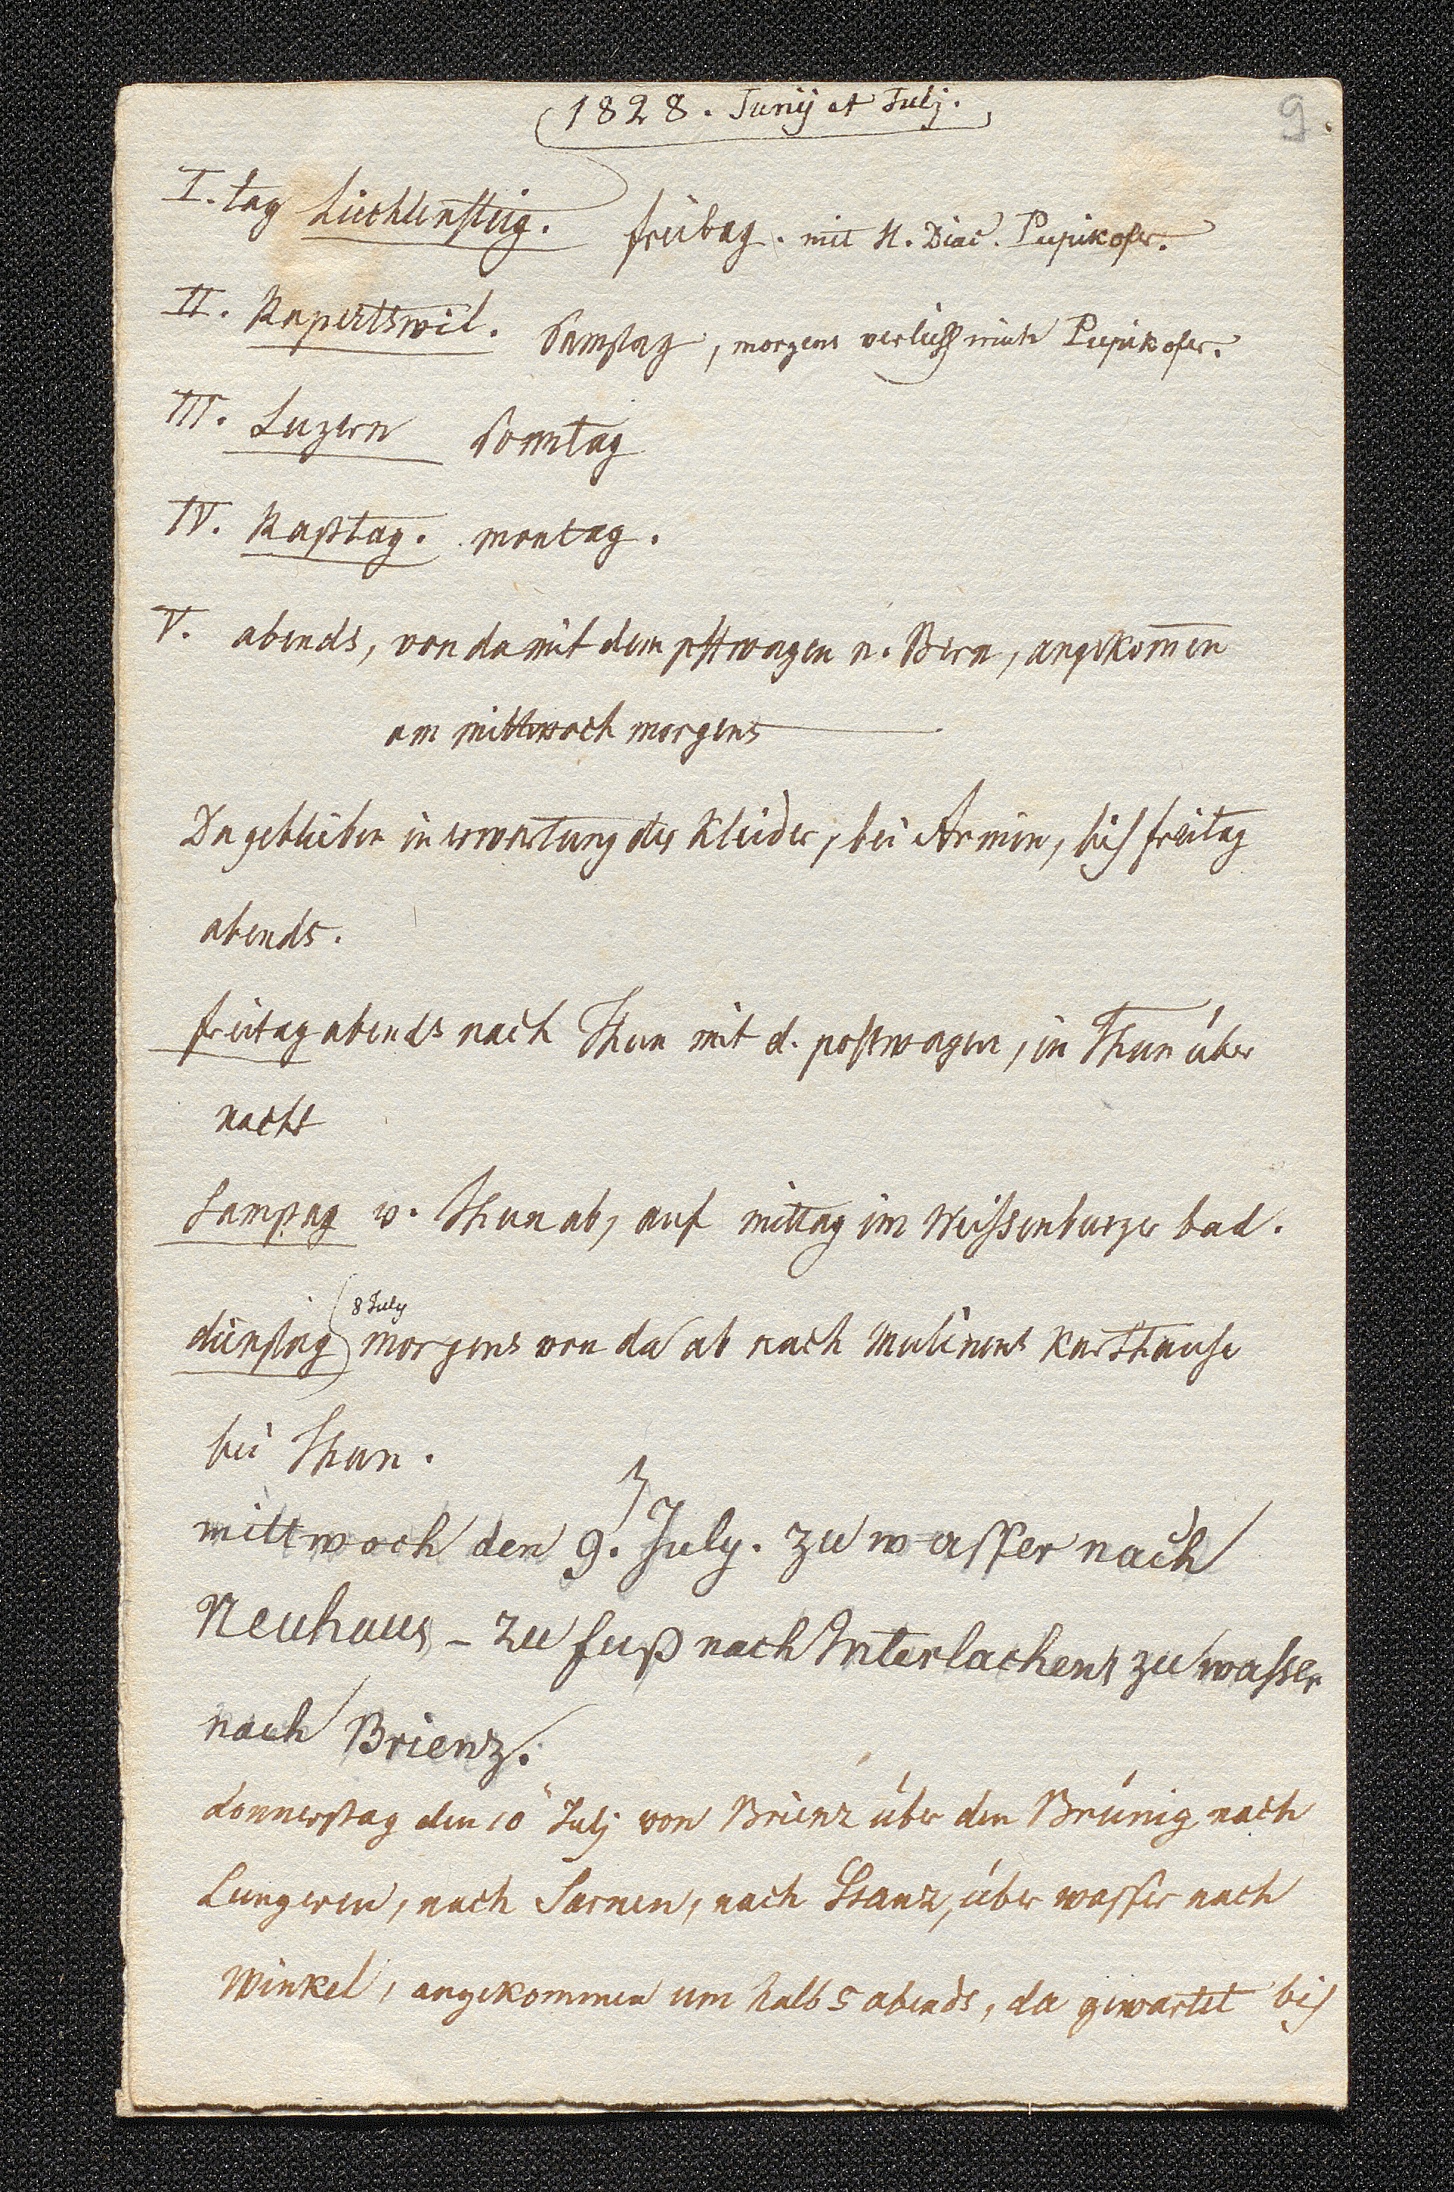 1828. Junij et Julj.
9.
I. tag Liechtensteig. freitag. mit H. Diac. Pupikofer.
II. Rapertswil. Samstag, morgens verliess mich Pupikofer.
III. Luzern Sonntag
IV. Rasttag. montag.
V. abends, von da mit dem pstwagen n. Bern, angekom̄en
am mittwoch morgens
Da geblieben in erwartung der Kleider, bei Armin, bis freitag
abends.
freitag abends nach Thun mit d. postwagen, in Thun über
nacht
Samstag v. Thun ab, auf mittag im Weissenburger bad.
dienstag (8 July) morgens von da ab nach Mulinens Karthause
bei Thun.
mittwoch den 9. July. zu wasser nach
Neuhaus – zu fuß nach Interlachen, zu wasser
nach Brienz.
donnerstag den 10 Julj von Brienz über den Brünig nach
Lungeren, nach Sarnen, nach Stanz, über wasser nach
Winkel, angekommen um halb 5 abends, da gewartet bis